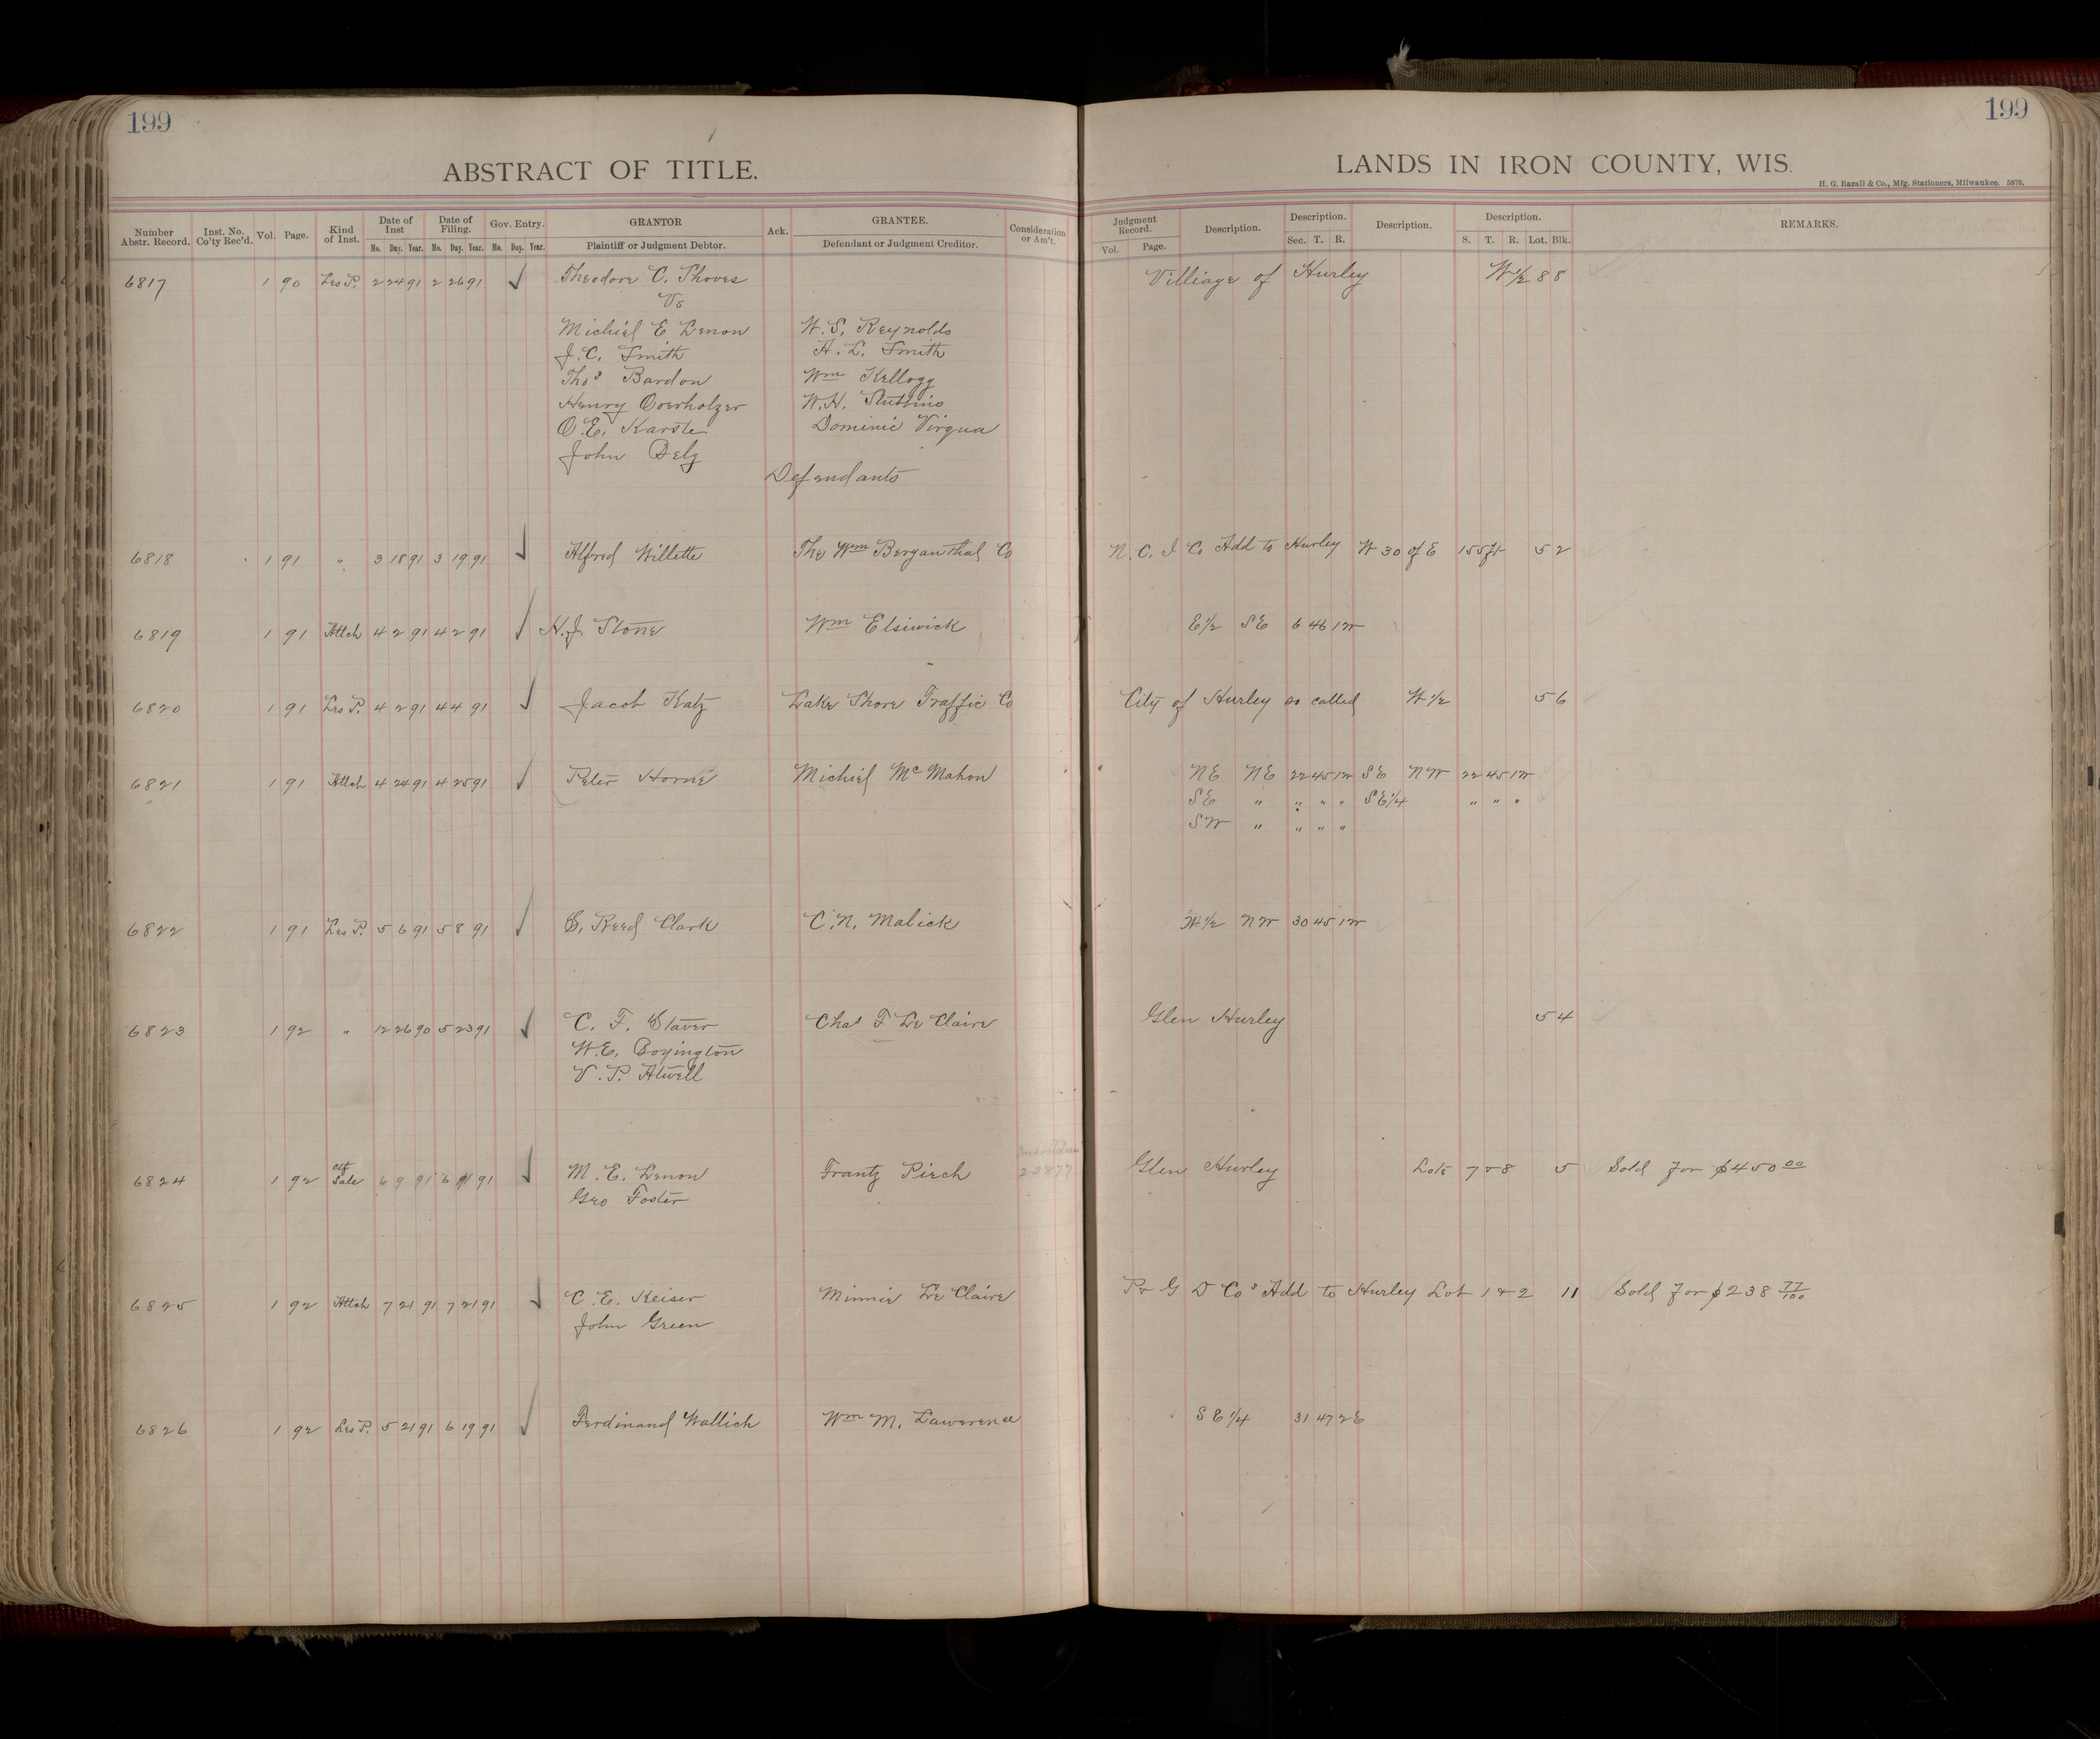 199
199
ABSTRACT OF TITLE.
LANDS IN IRON COUNTY, WIS.
H. G. Razall & Co., Mfg. Stationers, Milwaukee. 5876.
Number Abstr. Record. Inst. No. Co'ty Rec'd. Vol. Page. Kind of Inst. Date of Inst Mo. Day. Year. Date of Filing. Mo. Day. Year. Gov. Entry. Mo. Day. Year. GRANTOR Plaintiff or Judgment Debtor. Ack. GRANTEE. Defendant or Judgment Creditor. Consideration or Am't. Judgment Record. Vol. Page. Description. Description. Sec. T. R. Description. Description. S. T. R. Lot. Blk. REMARKS.
6817 1 90 Les P. 2 24 91 2 26 91 ✓ Theodore C. Shoves Villiage of Hurley W 1/2 8 8
Vs
Michiel E Lenon W. S. Reynolds
J. C. Smith H. L. Smith
Thos Bardon Wm Kellogg
Henry Overholzer W. H. Stubbins
O. E. Karste Dominic Virgua
John Delz
Defendants
6818 1 91 " 3 18 91 3 19 91 ✓ Alfred Willette The Wm Berganthal Co N. C. I Co Add to Hurley W 30 of E 155 ft 5 2
6819 1 91 Attch 4 2 91 4 2 91 ✓ H. J. Stone Wm Elsiwick E 1/2 SE 6 46 1 W
6820 1 91 Les P. 4 2 91 4 4 91 ✓ Jacob Katz Lake Shore Traffic Co City of Hurley so called W 1/2 5 6
6821 1 91 Attch 4 24 91 4 25 91 ✓ Peter Horne Michiel Mc Mahon NE NE 22 45 1W SE NW 22 45 1W
SE " " " " SE 1/4 " " "
SW " " " "
6822 1 91 Les P. 5 6 91 5 8 91 ✓ S. Reed Clark C. N. Malick W 1/2 NW 30 45 1W
6823 1 92 " 12 26 90 5 23 91 ✓ C. F. Staver Chas F Le Claire Glen Hurley 5 4
W. E. Boyington
V. P. Atwell
6824 1 92 Ctf Sale 6 9 91 6 11 91 ✓ M. E. Lenon Frantz Pirch 23877 Glen Hurley Lots 7 & 8 5 Sold for $450 00
Geo Foster
6825 1 92 Attch 7 21 91 7 21 91 ✓ C. E. Keiser Minnie Le Claire P & G D Co's Add to Hurley Lot 1 & 2 11 Sold for $238 77/100
John Green
6826 1 92 Les P. 5 21 91 6 19 91 ✓ Ferdinand Wallich Wm M. Lawerence SE 1/4 31 47 2 E